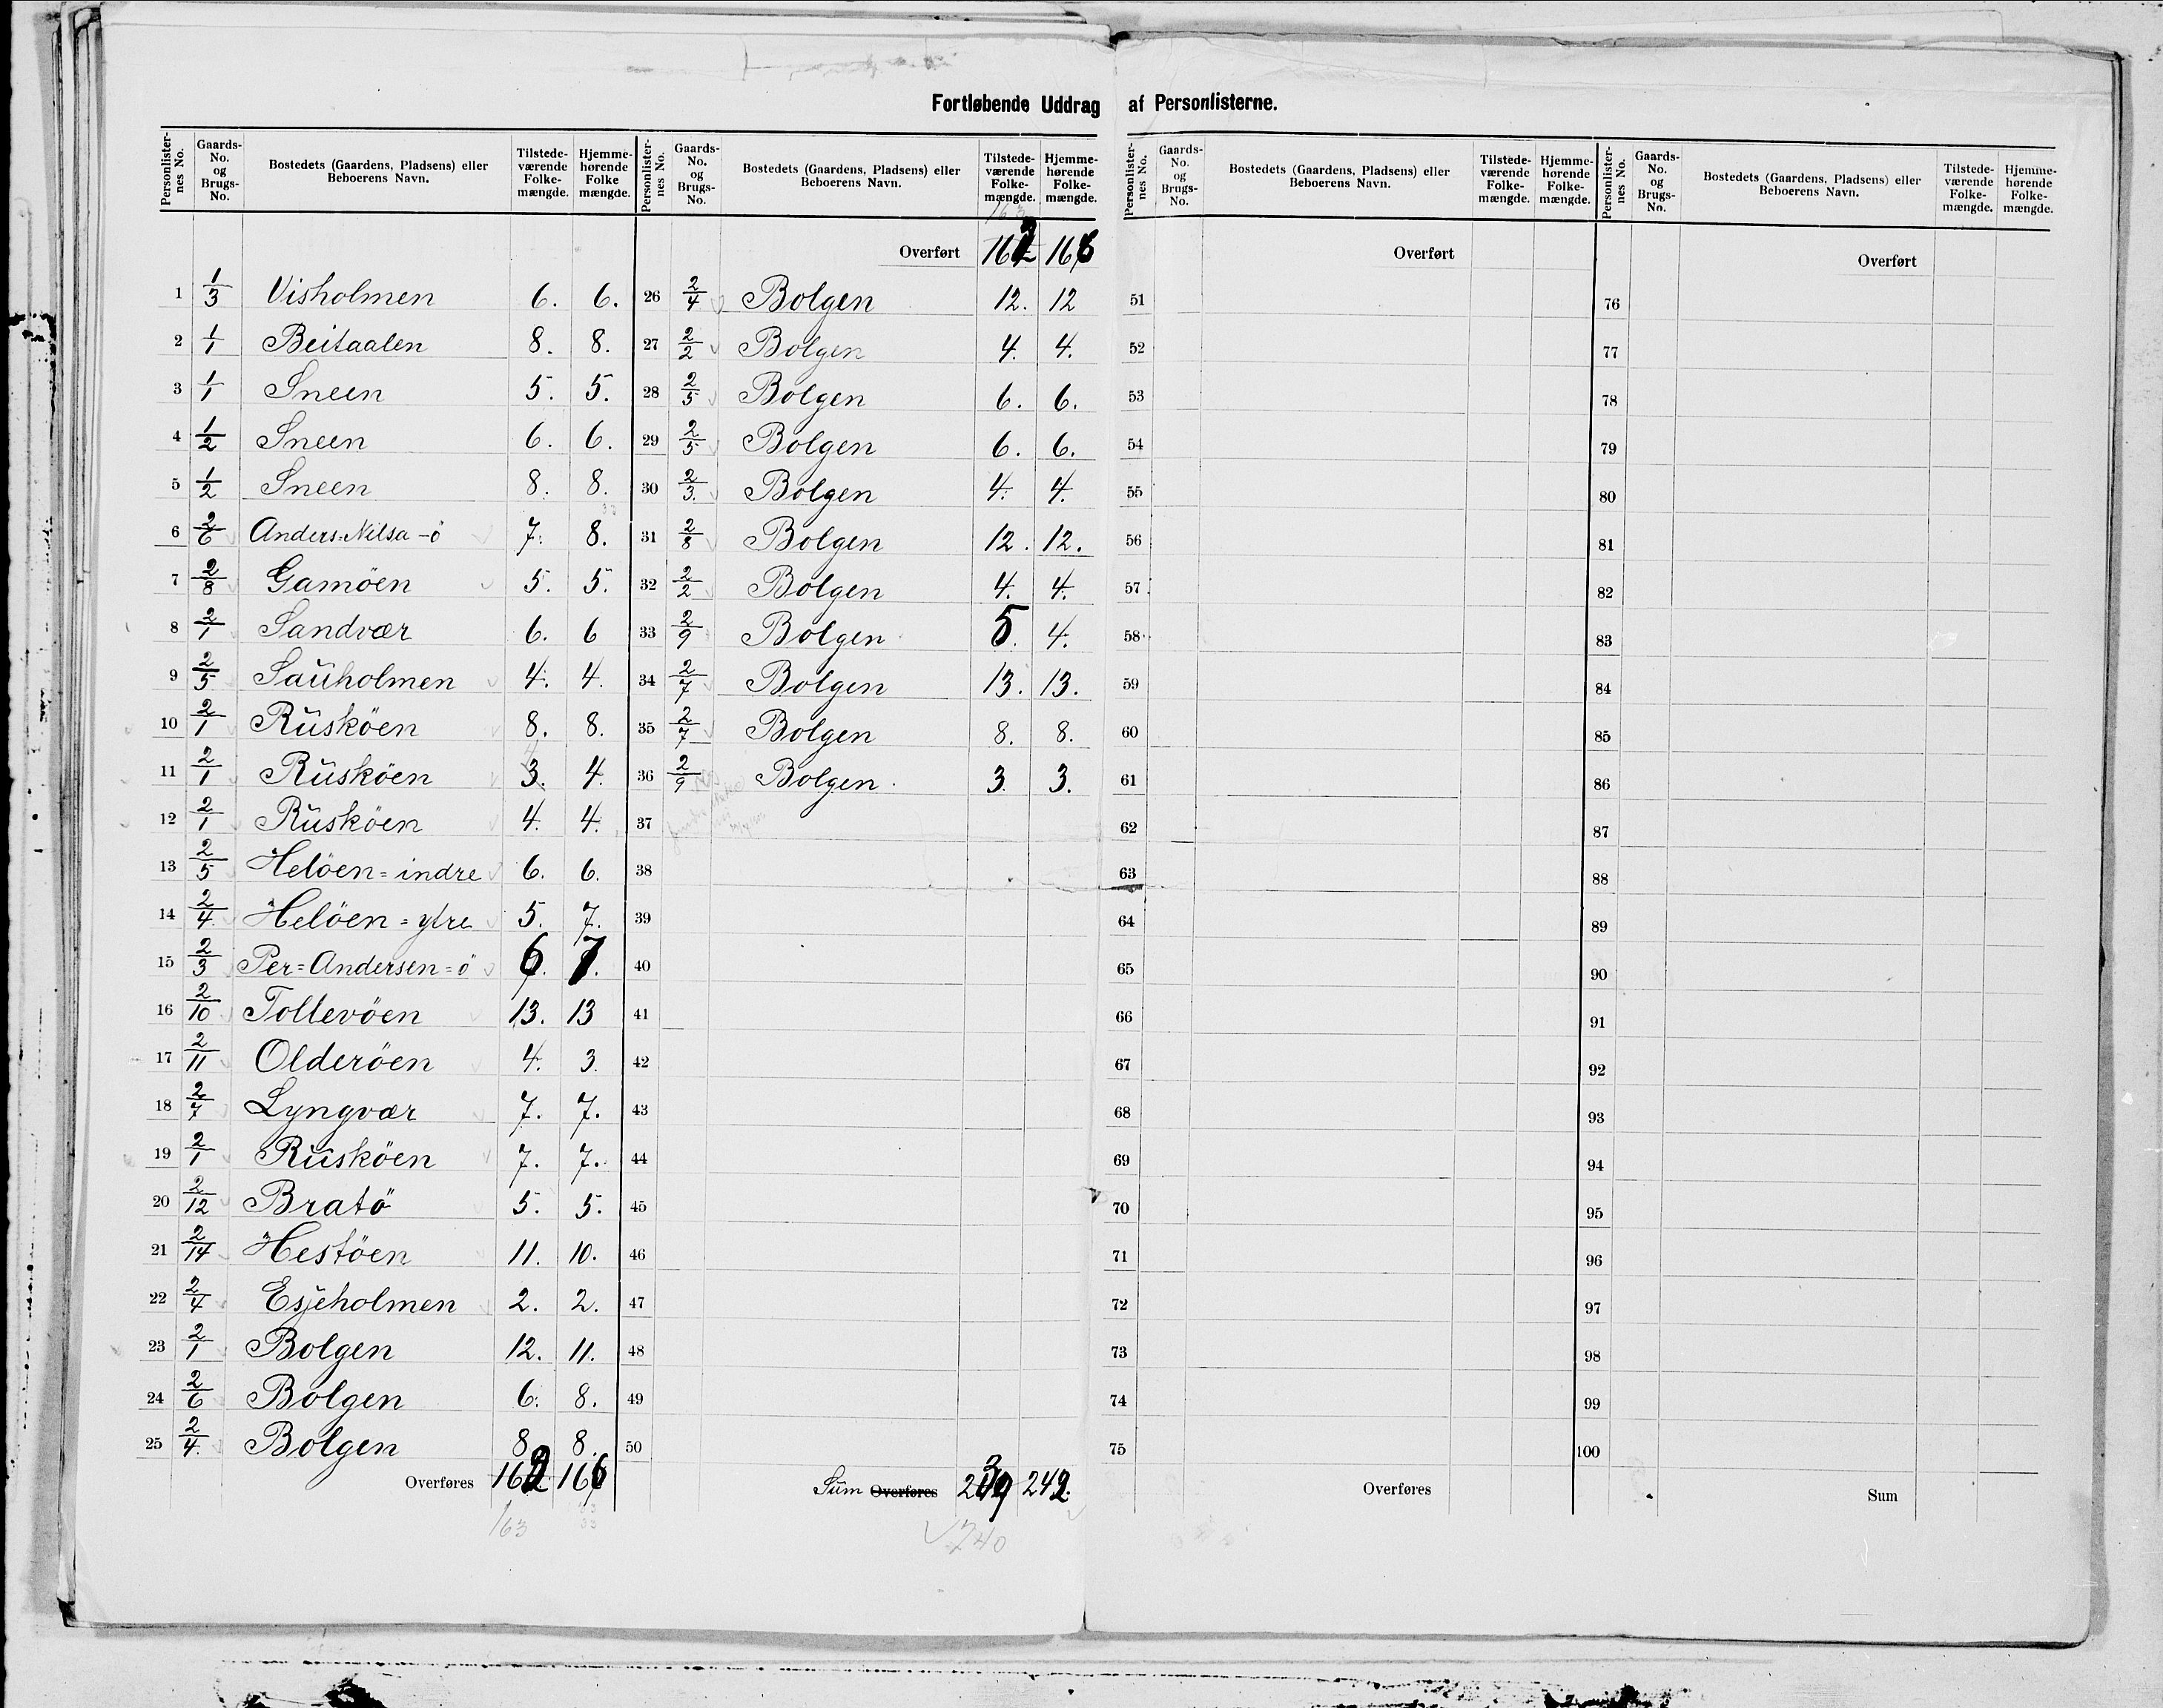 Fortløbende Uddrag af Personlisterne.
Personlister-nes No. | Gaards-No. og Brugs-No. | Bostedets (Gaardens, Pladsens) eller Beboerens Navn. | Tilstede-værende Folke-mængde. | Hjemme-hørende Folke mængde.
1 1/3 Visholmen 6. 6.
2 1/1 Beitaalen 8. 8.
3 1/1 Sneen 5. 5.
4 1/2 Sneen 6. 6.
5 1/2 Sneen 8. 8.
6 2/6 Anders-Nilsa-ö 7. 8.
7 2/8 Gamöen 5. 5.
8 2/1 Sandvær 6. 6
9 2/5 Sauholmen 4. 4.
10 2/1 Rusköen 8. 8.
11 2/1 Rusköen 3. 4.
12 2/1 Rusköen 4. 4.
13 2/5 Helöen=indre 6. 6.
14 2/4 Helöen=ytre 5. 7.
15 2/3 Per=Andersen=ö 6. 7.
16 2/10 Tollevöen 13. 13
17 2/11 Olderöen 4. 3.
18 2/7 Lyngvær 7. 7.
19 2/1 Rusköen 7. 7.
20 2/12 Bratö 5. 5.
21 2/14 Hestöen 11. 10.
22 2/4 Esjeholmen 2. 2.
23 2/1 Bolgen 12. 11.
24 2/6 Bolgen 6. 8.
25 2/4 Bolgen 8 8.
Overføres 162 166
163
Personlister-nes No. | Gaards-No. og Brugs-No. | Bostedets (Gaardens, Pladsens) eller Beboerens Navn. | Tilstede-værende Folke-mængde. | Hjemme-hørende Folke-mængde.
163
Overført 162 166
26 2/4 Bolgen 12. 12
27 2/2 Bolgen 4. 4.
28 2/5 Bolgen 6. 6.
29 2/5 Bolgen 6. 6.
30 2/3. Bolgen 4. 4.
31 2/8 Bolgen 12. 12.
32 2/2 Bolgen 4. 4.
33 2/9 Bolgen 5. 4.
34 2/7 Bolgen 13. 13.
35 2/7 Bolgen 8. 8.
36 2/9 Bolgen 3. 3.
37
38
39
40
41
42
43
44
45
46
47
48
49
50
Sum Overføres 239 242.
240
Personlister-nes No. | Gaards-No. og Brugs-No. | Bostedets (Gaardens, Pladsens) eller Beboerens Navn. | Tilstede-værende Folke-mængde. | Hjemme-hørende Folke-mængde.
Overført
51
52
53
54
55
56
57
58
59
60
61
62
63
64
65
66
67
68
69
70
71
72
73
74
75
Overføres
Personlister-nes No. | Gaards-No. og Brugs-No. | Bostedets (Gaardens, Pladsens) eller Beboerens Navn. | Tilstede-værende Folke-mængde. | Hjemme-hørende Folke-mængde.
Overført
76
77
78
79
80
81
82
83
84
85
86
87
88
89
90
91
92
93
94
95
96
97
98
99
100
Sum